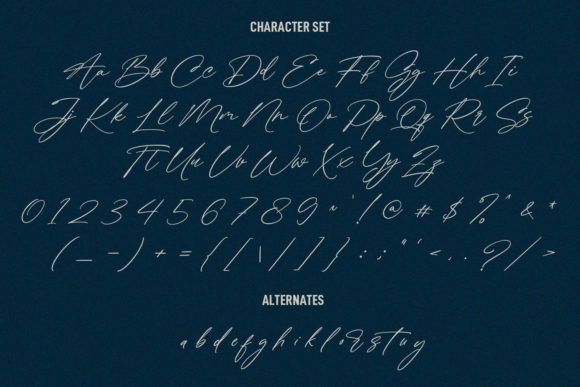 CHARACTER SET
Aa Bb Cc Dd Ee Ff Gg Hh Ii
Jj Kk Ll Mm Nn Oo Pp Qq Rr Ss
Tt Uu Vv Ww Xx Yy Zz
0 1 2 3 4 5 6 7 8 9 ~ ` ! @ # $ % ^ & *
( _ - ) + = { [ | \ / ] } : ; " ' < , . ? / >
ALTERNATES
a b d e f g h i k l o r s t u y